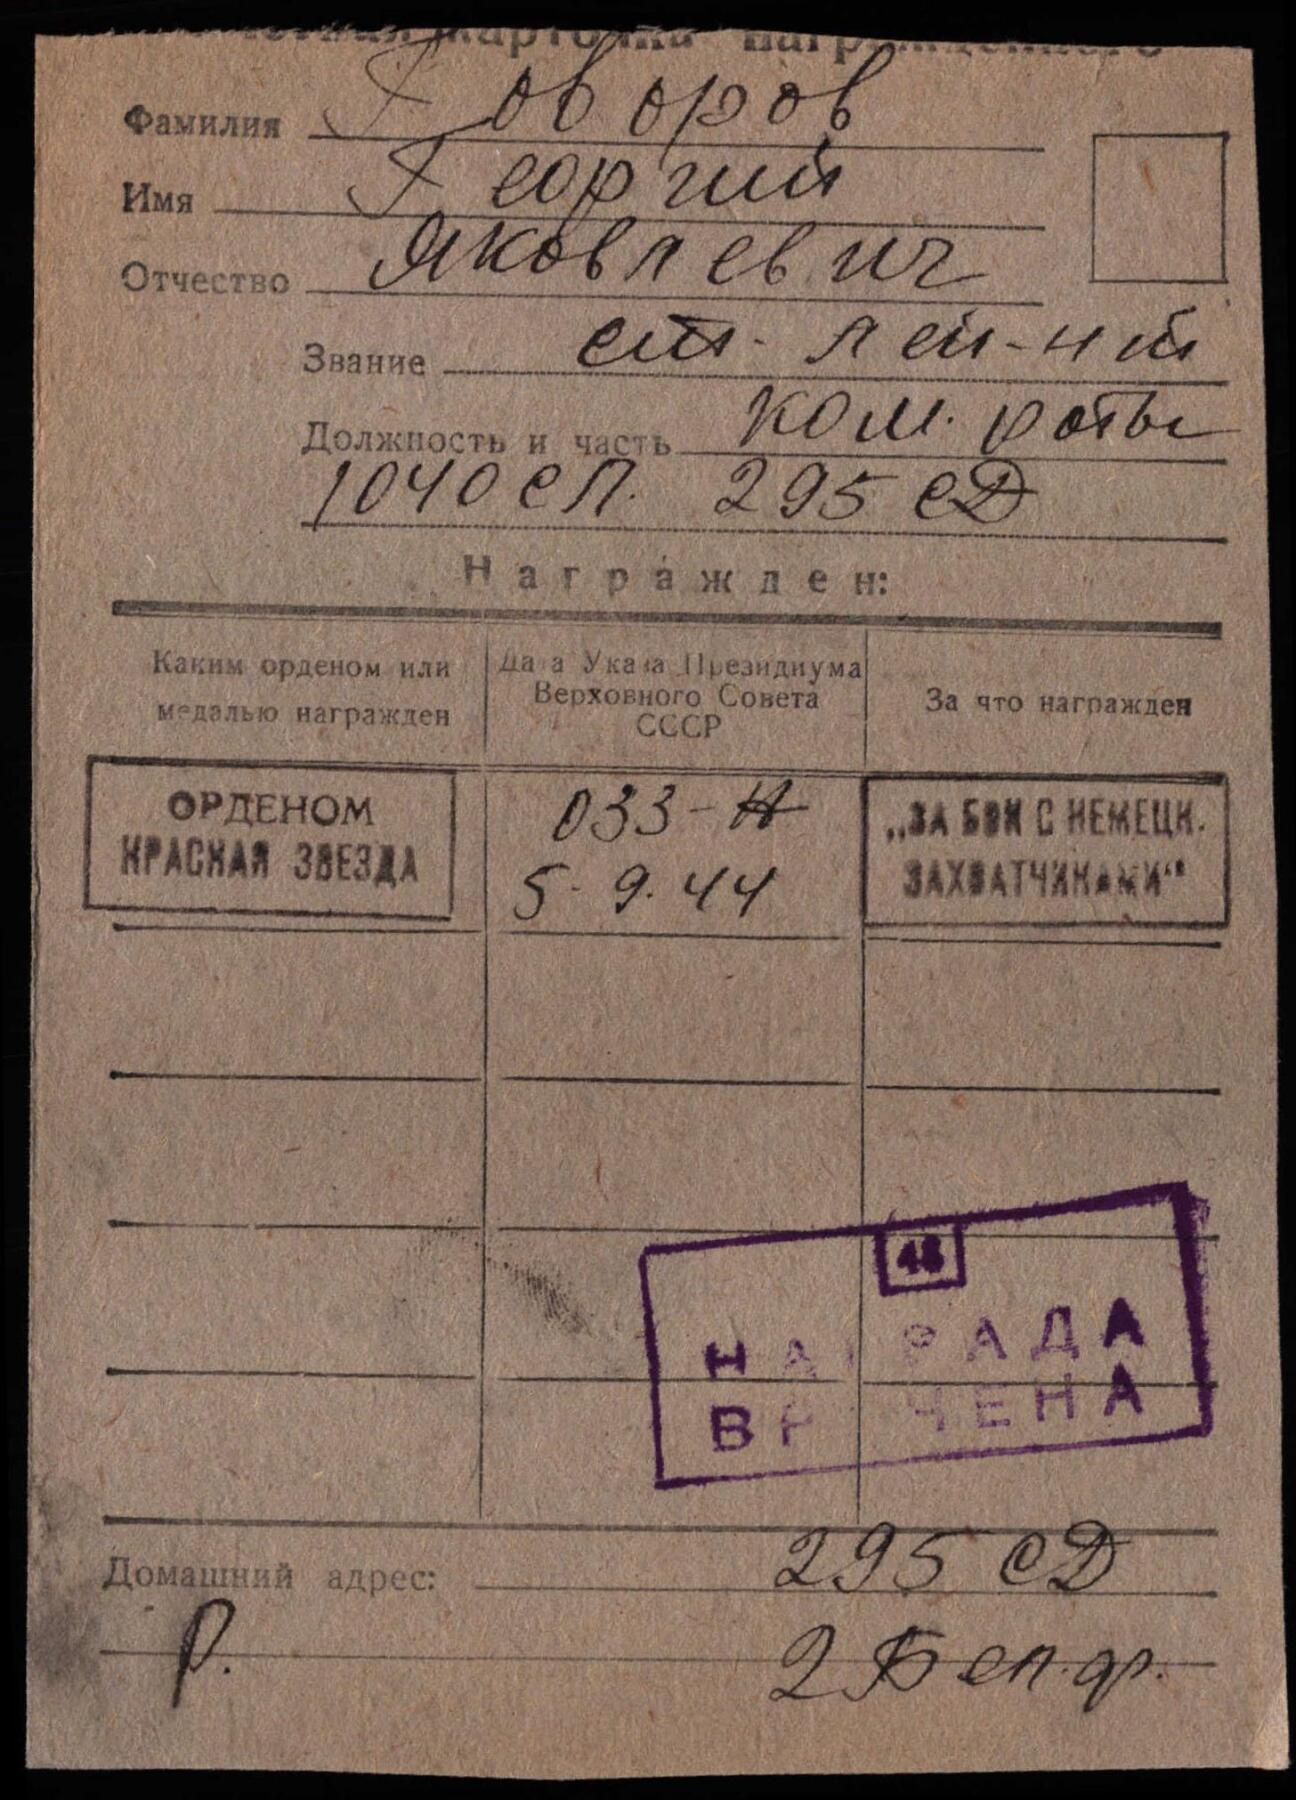 Учетная карточка награжденного
Фамилия Говоров
Имя Георгий
Отчество Яковлевич
Звание ст. лей-нт
Должность и часть ком. роты
1040 сп. 295 сД
Награжден:
Каким орденом или медалью награжден
Дата Указа Президиума Верховного Совета СССР
За что награжден
ОРДЕНОМ
КРАСНАЯ ЗВЕЗДА
033-Н
5.9.44
„ЗА БОИ С НЕМЕЦК.
ЗАХВАТЧИКАМИ“
48
НАГРАДА
ВРУЧЕНА
Домашний адрес: 295 сД
Р. 2 Бел. ф.